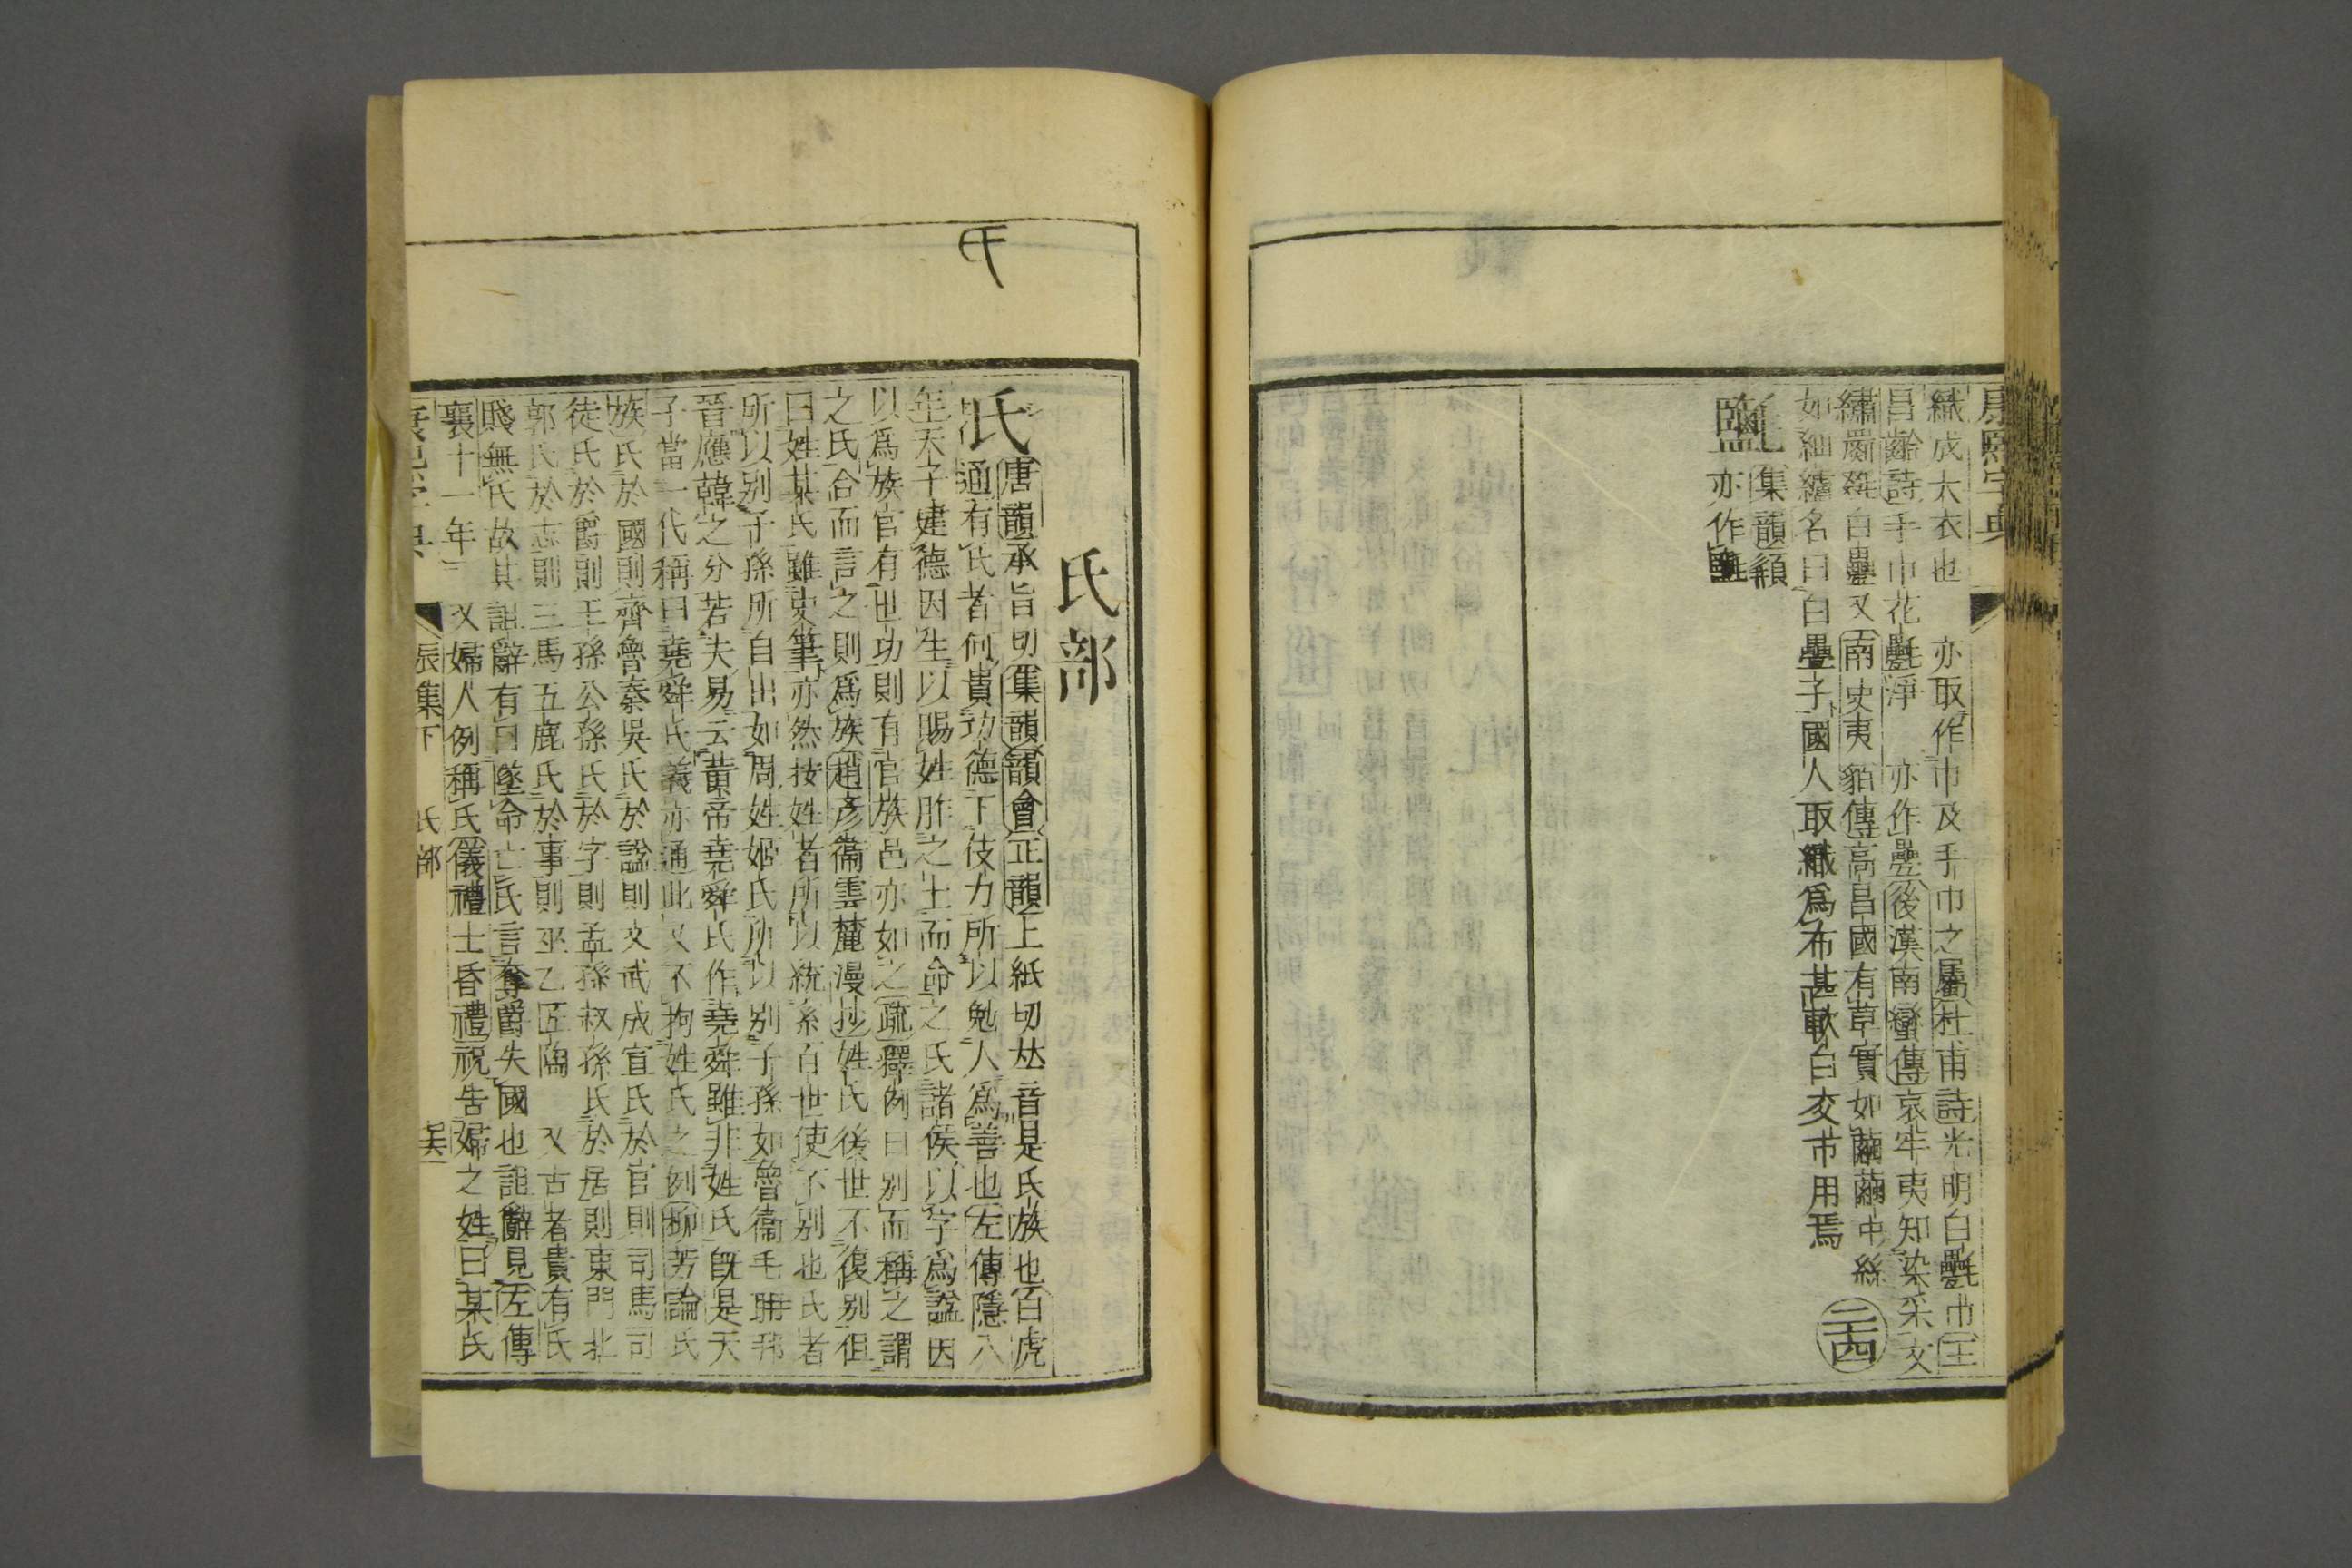 康熙字典
織成大衣也　亦取作巾及手巾之屬杜甫詩光明白氎巾王
昌齡詩手巾花氎淨　亦作疊後漢南蠻傳哀牢夷知染采文
繡罽白疊又南史夷貊傳高昌國有草實如繭繭中絲
如細纑名曰白疊子國人取織爲布布甚軟白交市用焉
二十四
集韻
亦作
氏部
氏唐韻承旨切集韻韻會正韻上紙切𠀤音是氏族也白虎
通有氏者何貴功德下伎力所以勉人爲善也左傳隱八
年天子建德因生以賜姓胙之土而命之氏諸侯以字爲諡因
以爲族官有世功則有官族邑亦如之疏釋例曰別而稱之謂
之氏合而言之則爲族趙彥衞雲麓漫抄姓氏後世不復別但
曰姓某氏雖史筆亦然按姓者所以統系百世使不別也氏者
所以別子孫所自出如周姓姬氏所以別子孫如魯衞毛聃邗
晉應韓之分若夫易云黃帝堯舜氏作堯舜雖非姓氏旣是天
子當一代稱曰堯舜氏義亦通此又不拘姓氏之例柳芳論氏
族氏於國則齊魯秦吳氏於諡則文武成宣氏於官則司馬司
徒氏於爵則王孫公孫氏於字則孟孫叔孫氏於居則東門北
郭氏於志則三馬五鹿氏於事則巫乙匠陶　又古者貴有氏
賤無氏故其詛辭有曰墜命亡氏言奪爵失國也詛辭見左傳
襄十一年　又婦人例稱氏儀禮士昏禮祝告婦之姓曰某氏
康熙字典　辰集下　氏部